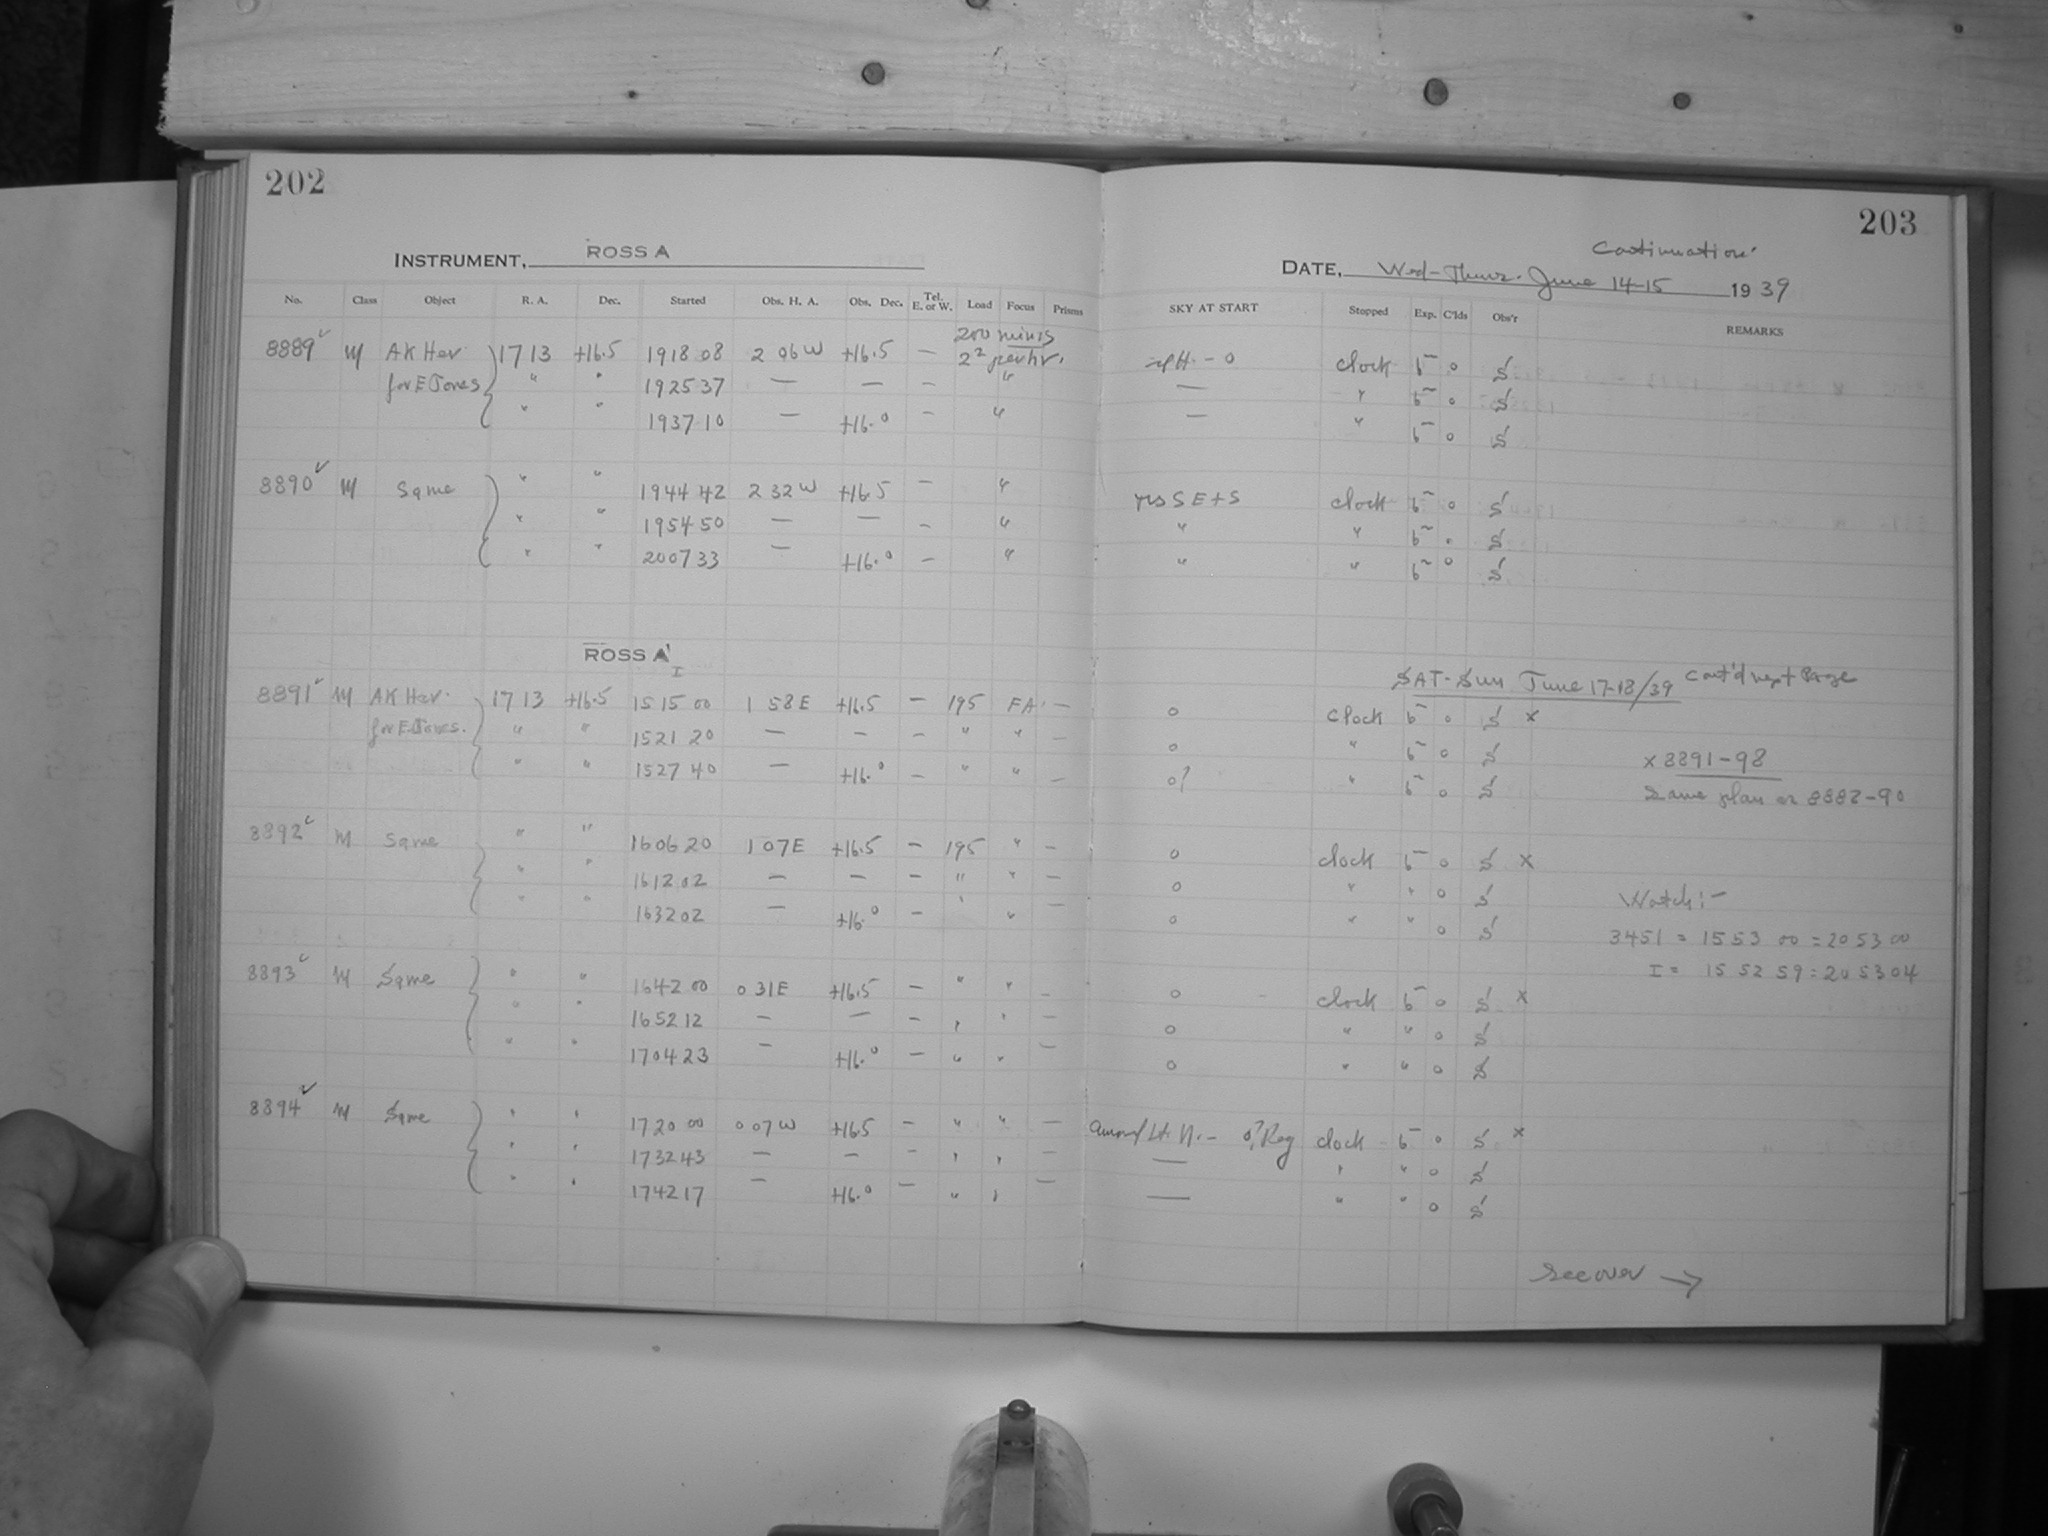 202
INSTRUMENT, ROSS A
No. Class Object R. A. Dec. Started Obs. H. A. Obs. Dec. Tel. E. or W. Load Focus Prisms
200 minis
8889 ✓ M AK Her 1713 +16.5 1918 08 2 06 W +16.5 — 2² per hr.
for E Jones " " 1925 37 — — — "
" " 1937 10 — +16.0 — "
8890 ✓ M Same " " 1944 42 2 32 W +16.5 — "
" " 1954 50 — — — "
" " 2007 33 — +16.0 — "
ROSS A
I
8891 ✓ M AK Her. 1713 +16.5 1515 00 1 58 E +16.5 — 195 FA. —
for E. Jones. " " 1521 20 — — — " " —
" " 1527 40 — +16.0 — " " —
8892 ✓ M Same " " 1606 20 1 07 E +16.5 — 195 " —
" " 1612 02 — — — " " —
" " 1632 02 — +16.0 — ' " —
8893 ✓ M Same " " 1642 00 0 31 E +16.5 — " " —
" " 1652 12 — — — " " —
" " 1704 23 — +16.0 — " " —
8894 ✓ M Same " " 1720 00 0 07 W +16.5 — " " —
" " 1732 43 — — — " " —
" " 1742 17 — +16.0 — " " —
203
Continuation
DATE, Wed-Thurs. June 14-15 1939
SKY AT START Stopped Exp. C'lds Obs'r REMARKS
H. - 0 clock 6- 0 S
— " 6- 0 S
— " 6- 0 S
S E + S clock 6- 0 S
" " 6- 0 S
" " 6- 0 S
SAT-Sun June 17-18/39 Cont'd next Page
0 Clock 6- 0 S x
0 " 6- 0 S x 8891-98
0? " 6- 0 S Same plan as 8882-90
0 clock 6- 0 S x
0 " " 0 S Watch:-
0 " " 0 S 3451 = 15 53 00 = 20 53 00
I = 15 52 59 = 20 53 04
0 clock 6- 0 S x
0 " " 0 S
0 " " 0 S
0? Reg clock 6- 0 S x
— " " 0 S
— " " 0 S
See over →